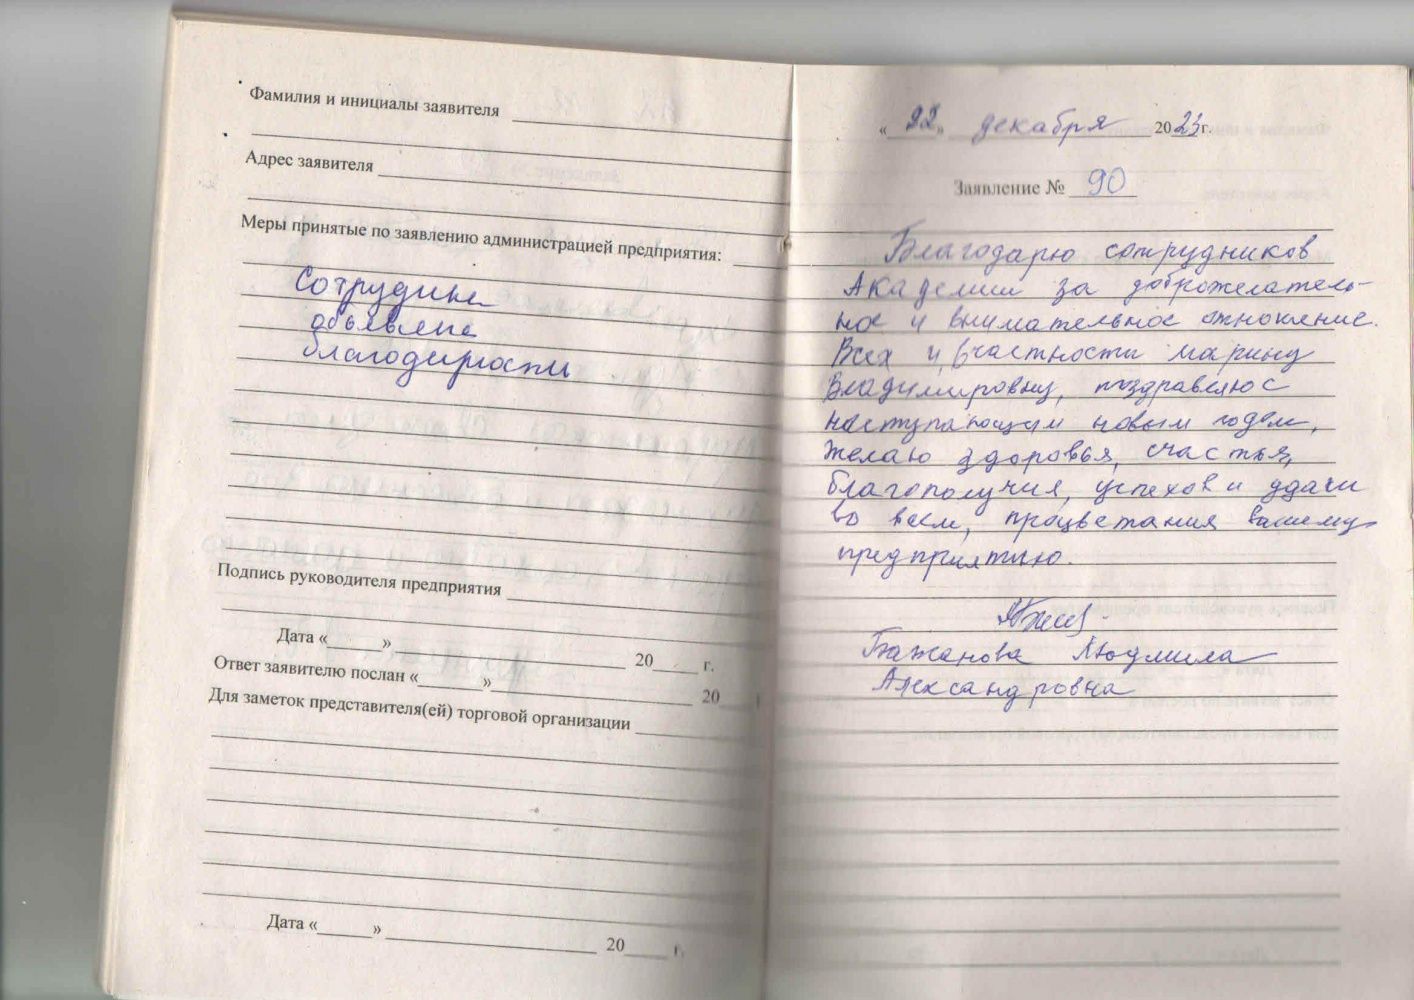 Фамилия и инициалы заявителя
Адрес заявителя
Меры принятые по заявлению администрацией предприятия:
Сотрудник
объявлена
благодарность
Подпись руководителя предприятия
Дата «____» ____ 20____ г.
Ответ заявителю послан «____» ____ 20____
Для заметок представителя(ей) торговой организации
Дата «____» ____ 20____ г.
«22» декабря 2023г.
Заявление № 90
Благодарю сотрудников
Академии за доброжелатель-
ное и внимательное отношение.
Всех и, в частности Марину
Владимировну, поздравляю с
наступающим новым годом,
желаю здоровья, счастья,
благополучия, успехов и удачи
во всем, процветания вашему
предприятию.
Бажанова Людмила
Александровна